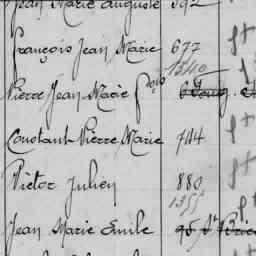 Jean Marie Auguste 592
François Jean Marie 677
1340
Pierre Jean Marie
Constant Pierre Marie 744
Victor Julien 880
1355
Jean Marie Emile 95 St Brieuc